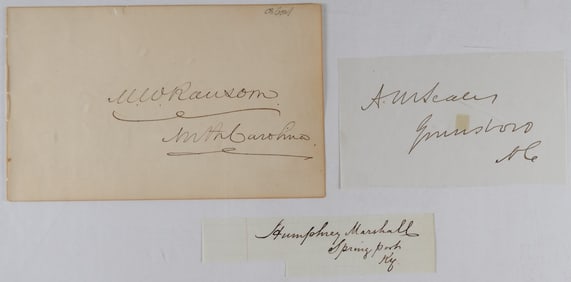 M.W. Ransom.
North Carolina.
A. M. Scales
Greensboro
N C
Humphrey Marshall
Spring port
Ky.